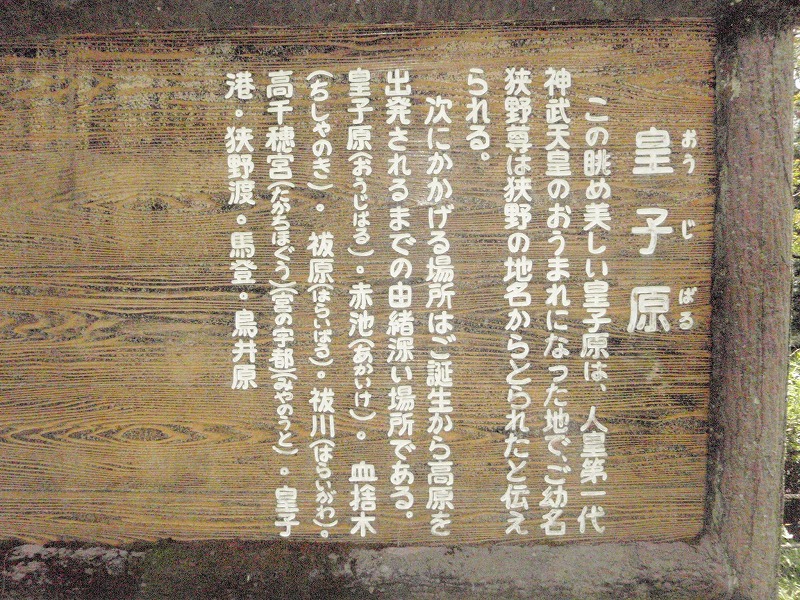 皇子原
おうじばる
この眺め美しい皇子原は、人皇第一代
神武天皇のおうまれになった地で、ご幼名
狭野尊は狭野の地名からとられたと伝え
られる。
次にかかげる場所はご誕生から高原を
出発されるまでの由緒深い場所である。
皇子原(おうじばる)。赤池(あかいけ)。血捨木
(ちしゃのき)。祓原(はらいばる)。祓川(はらいがわ)。
高千穂宮(たかちほぐう)(宮の宇都(みやのうと)。皇子
港。狭野渡。馬登。鳥井原